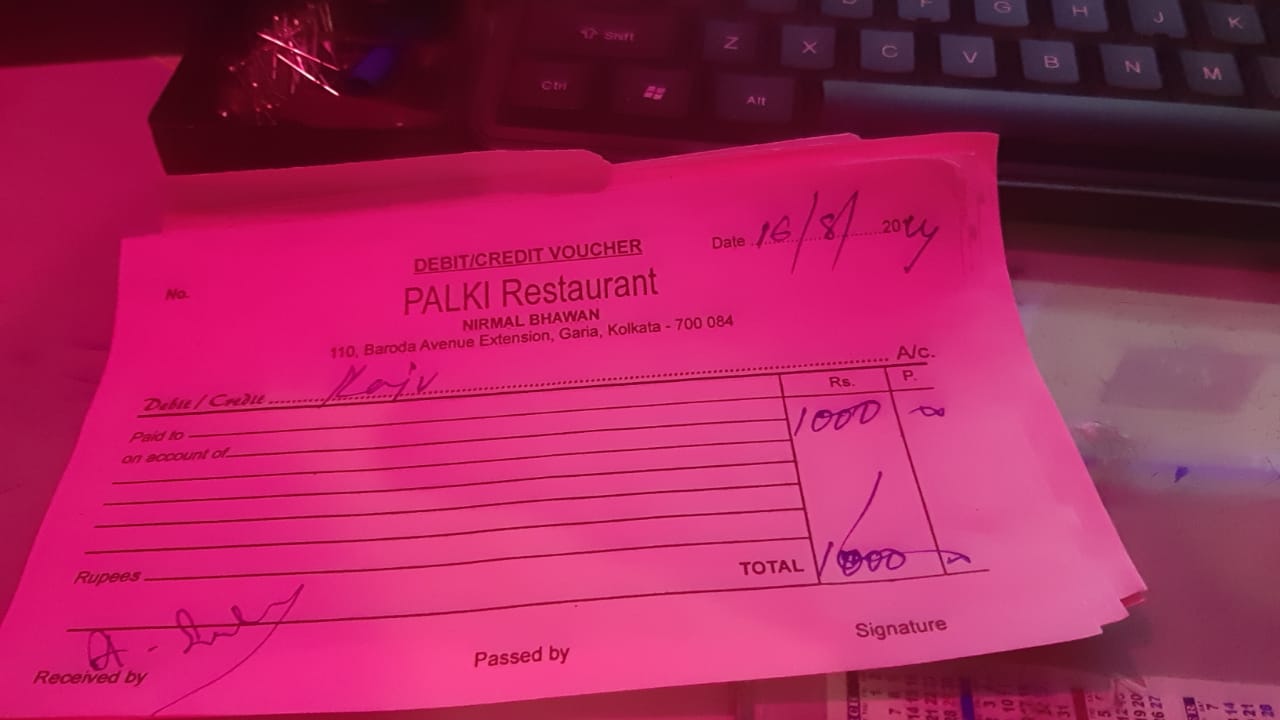 Shift Z X C V B N M
G H J K
Ctrl Alt
DEBIT/CREDIT VOUCHER
Date 16/8/2024
No.
PALKI Restaurant
NIRMAL BHAWAN
110, Baroda Avenue Extension, Garia, Kolkata - 700 084
Debit / Credit A/c.
Rs. P.
Paid to 1000
on account of
Rupees
TOTAL 1000
Received by
Passed by
Signature